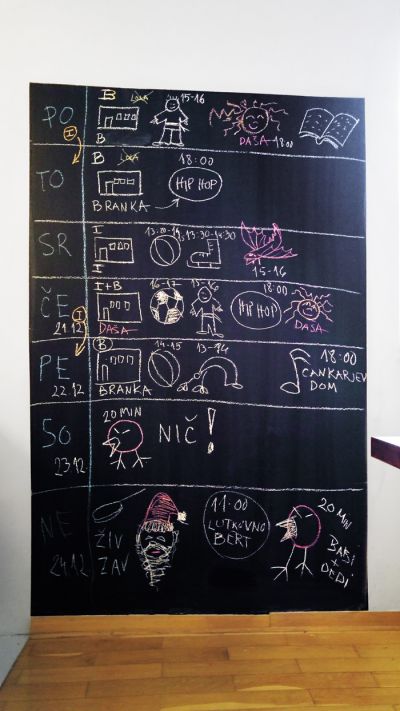 PO
B
15-16
I
B
DAŠA 18:00
TO
B
18:00
HIP HOP
BRANKA
SR
I
13:20-14
13:30-14:30
I
15-16
ČE
I+B
16-17
15-16
18:00
HIP HOP
21.12
I
DAŠA
DAŠA
PE
B
14-15
13-14
18:00
CANKARJEV
DOM
22.12
BRANKA
SO
20 MIN
NIČ!
23.12
NE
11:00
LUTKOVNO
BERT
20 MIN
24.12
ŽIV
ŽAV
BABI
+
DEDI